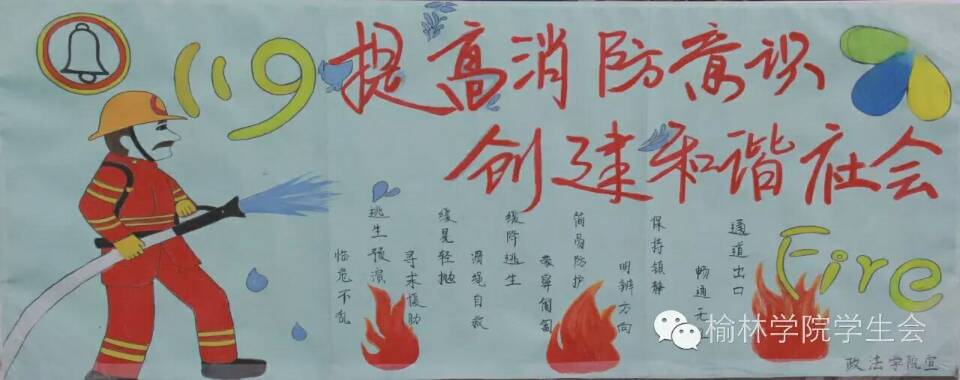 119
提高消防意识
创建和谐社会
Fire
通道出口
畅通无
保持镇静
明辨方向
简易防护
蒙鼻匍匐
缓降逃生
滑绳自救
缓晃轻抛
寻求援助
逃生预演
临危不乱
榆林学院学生会
政法学院宣